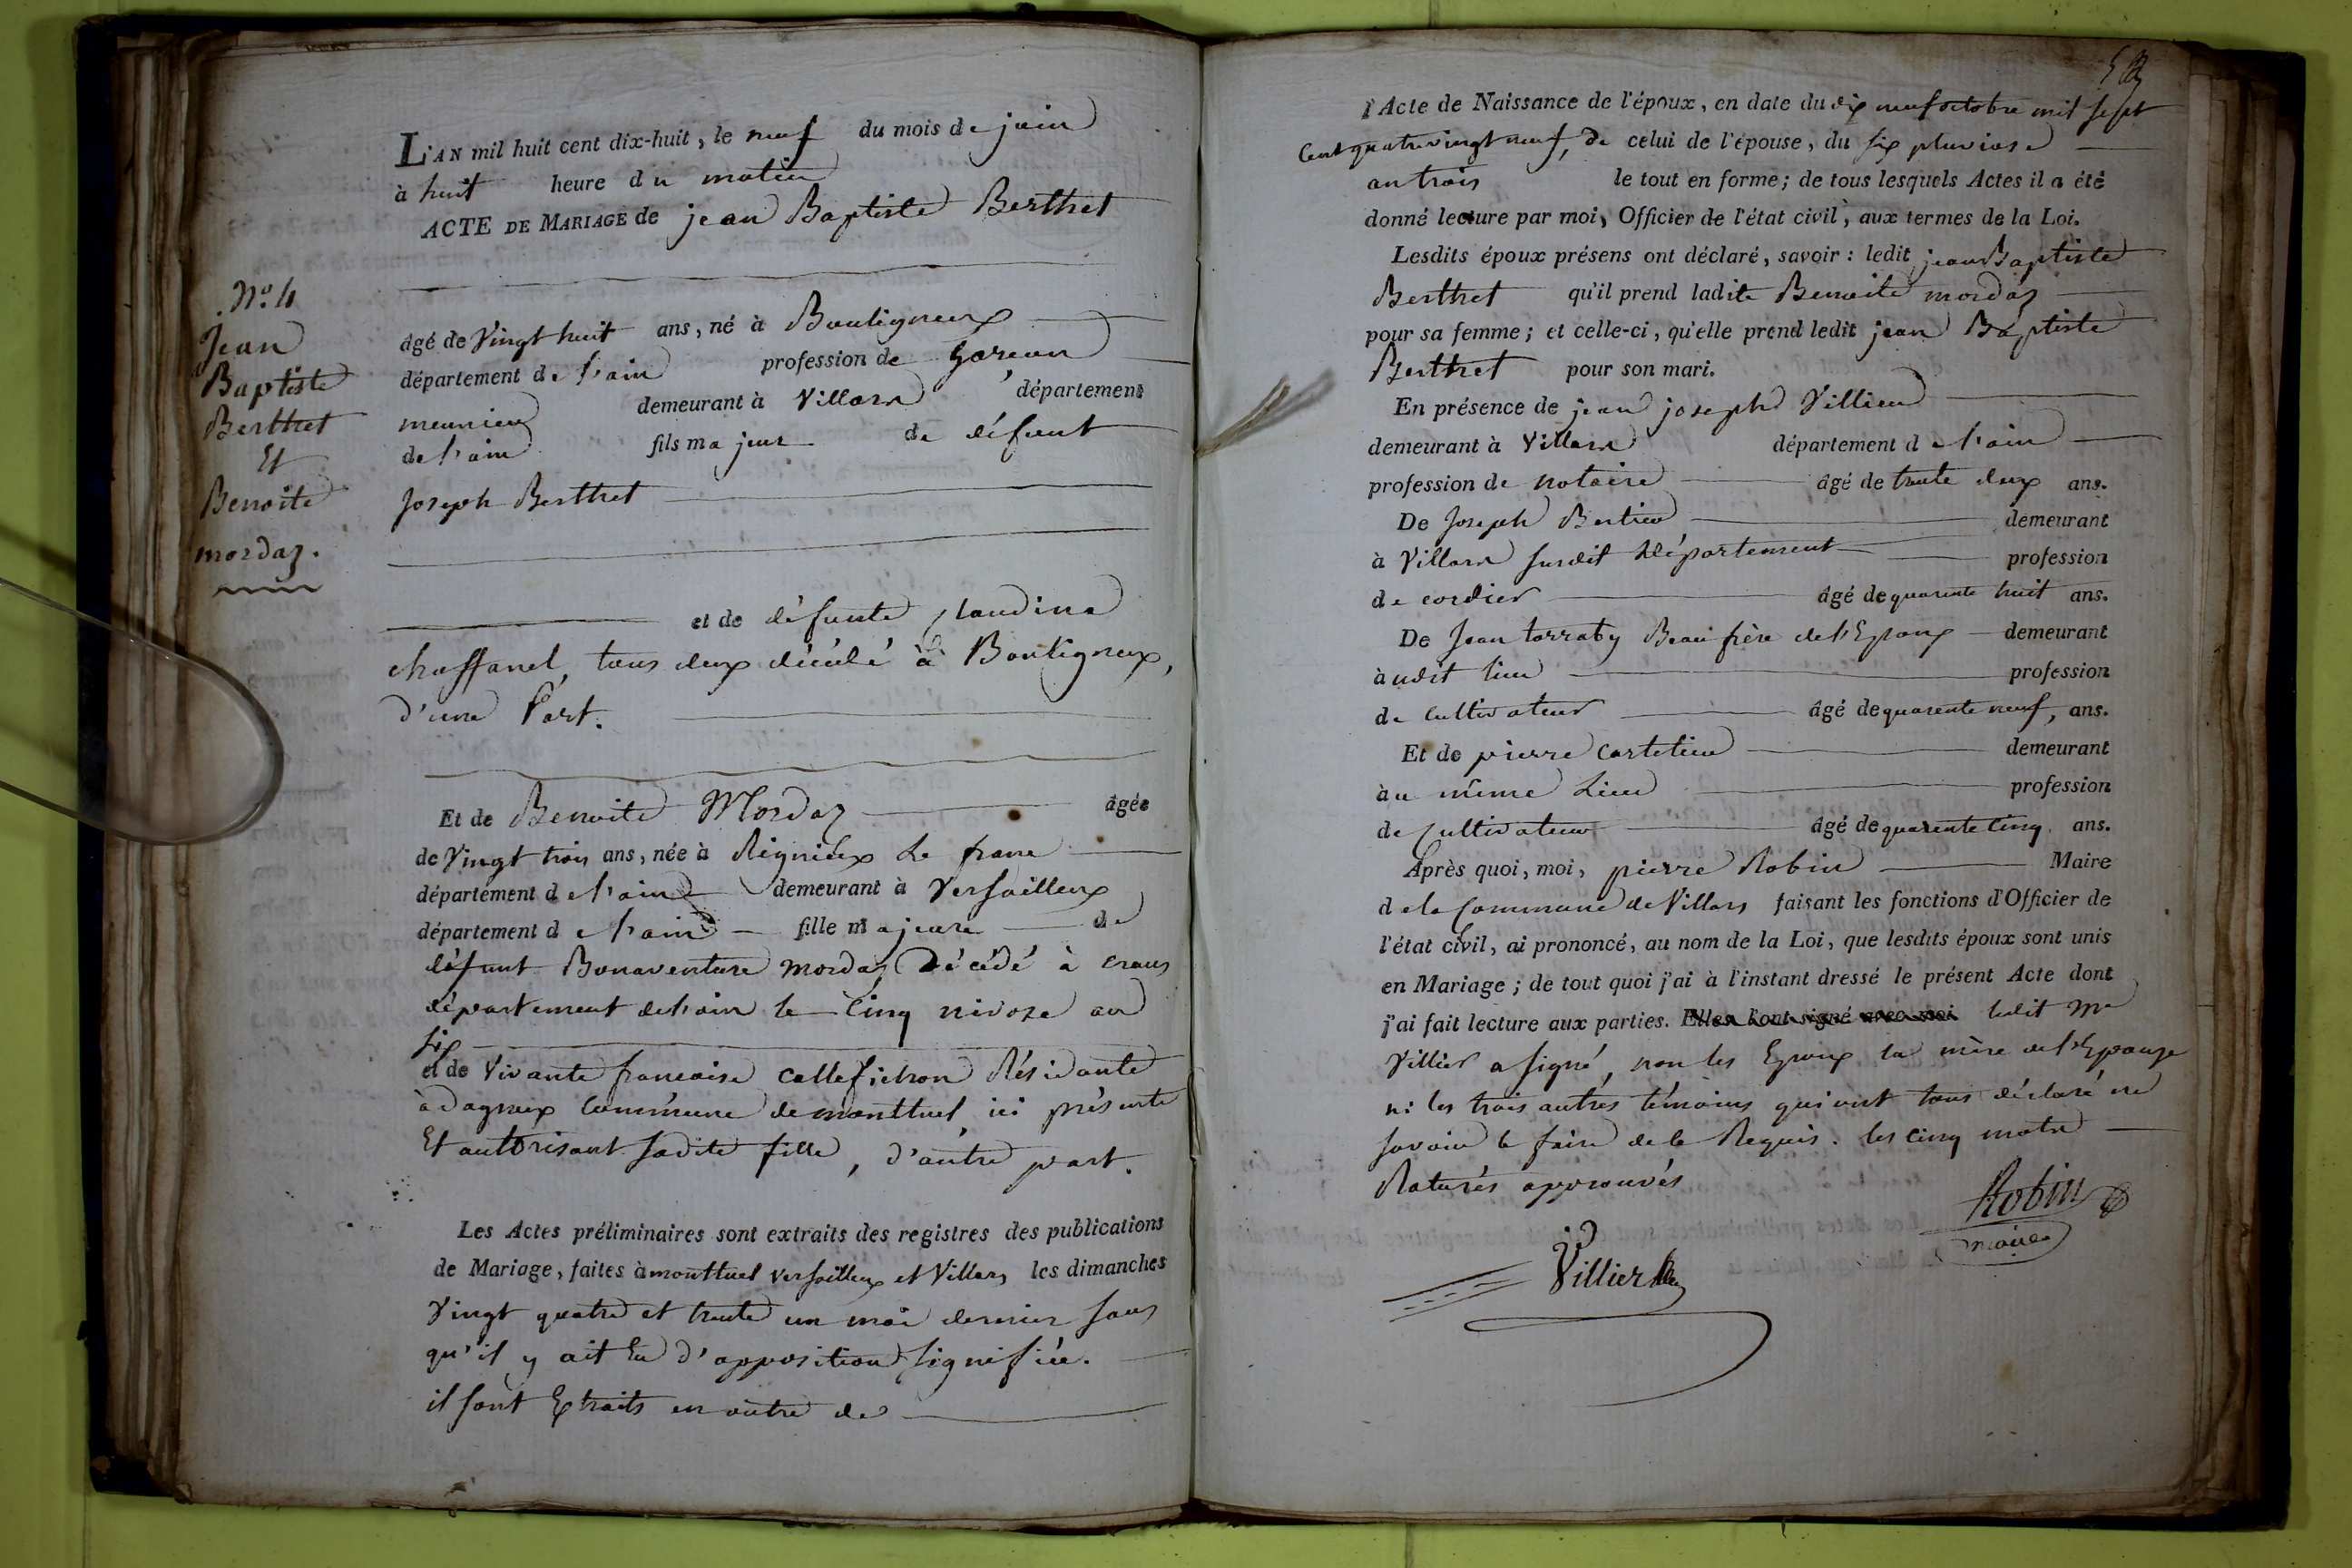 L'AN mil huit cent dix-huit, le neuf du mois de juin
à huit heure du matin
ACTE DE MARIAGE de jean Baptiste Berthet
N.º 4
Jean
Baptiste
Berthet
Et
Benoite
mordaz.
âgé de Vingt huit ans, né à Bouligneux
département de l'ain profession de Garçon
meunier demeurant à Villars département
de l'ain fils majeur de défunt
Joseph Berthet
et de défunte Claudine
chaffanel, tous deux décédé à Bouligneux,
d'une Part.
Et de Benoite Mordaz âgée
de Vingt trois ans, née à Rignieux Le franc
département de l'ain demeurant à Versailleux
département de l'ain fille majeure de
défunt Bonaventure mordaz Décédé à crans
département de l'ain le Cinq nivoze an
Six
et de Vivante francoise Résidante
à dagneux Commune de montluel, ici présente
Et autorisant sadite fille, d'autre part.
Les Actes préliminaires sont extraits des registres des publications
de Mariage, faites à montluel versailleux et Villars les dimanches
Vingt quatre et trente un mai dernier sans
qu'il y ait Eu d'opposition signifiée.
il sont Extraits en outre de
l'Acte de Naissance de l'époux, en date du dix neuf octobre mil sept
Cent quatre vingt neuf, de celui de l'épouse, du six pluviose
an trois le tout en forme; de tous lesquels Actes il a été
donné lecture par moi, Officier de l'état civil, aux termes de la Loi.
Lesdits époux présens ont déclaré, savoir : ledit jean Baptiste
Berthet qu'il prend ladite Benoite mordaz
pour sa femme; et celle-ci, qu'elle prend ledit jean Baptiste
Berthet pour son mari.
En présence de jean joseph Villier
demeurant à Villars département de l'ain
profession de notaire âgé de trente deux ans.
De Joseph Bertier demeurant
à Villars susdit Département profession
de cordier âgé de quarente huit ans.
De Jean Beau frère de l'Epoux demeurant
àudit lieu profession
de Cultivateur âgé de quarente neuf, ans.
Et de pierre demeurant
àu même Lieu profession
de Cultivateur âgé de quarente Cinq ans.
Après quoi, moi, pierre Robin Maire
de la Commune de Villars faisant les fonctions d'Officier de
l'état civil, ai prononcé, au nom de la Loi, que lesdits époux sont unis
en Mariage; de tout quoi j'ai à l'instant dressé le présent Acte dont
j'ai fait lecture aux parties. Elles l'ont signé avec moi ledit Me
Villier a signé, non les Epoux la mère de l'Epouse
ni les trois autres témoins qui ont tous déclaré ne
savoir le faire de ce Requis. les Cinq mots
Raturés approuvés
Robin
maire
Villier